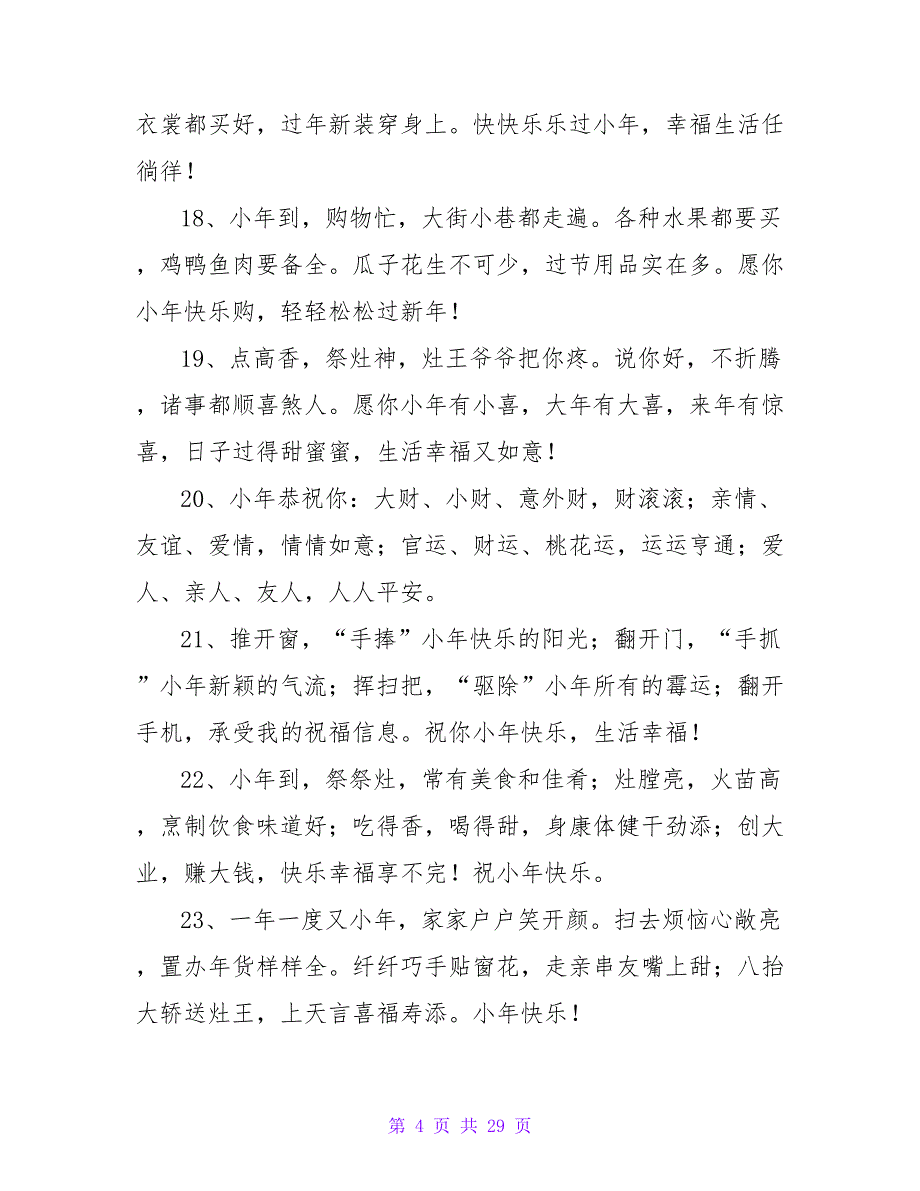 衣裳都买好，过年新装穿身上。快快乐乐过小年，幸福生活任
徜徉！
18、小年到，购物忙，大街小巷都走遍。各种水果都要买
，鸡鸭鱼肉要备全。瓜子花生不可少，过节用品实在多。愿你
小年快乐购，轻轻松松过新年！
19、点高香，祭灶神，灶王爷爷把你疼。说你好，不折腾
，诸事都顺喜煞人。愿你小年有小喜，大年有大喜，来年有惊
喜，日子过得甜蜜蜜，生活幸福又如意！
20、小年恭祝你：大财、小财、意外财，财滚滚；亲情、
友谊、爱情，情情如意；官运、财运、桃花运，运运亨通；爱
人、亲人、友人，人人平安。
21、推开窗，“手捧”小年快乐的阳光；翻开门，“手抓
”小年新颖的气流；挥扫把，“驱除”小年所有的霉运；翻开
手机，承受我的祝福信息。祝你小年快乐，生活幸福！
22、小年到，祭祭灶，常有美食和佳肴；灶膛亮，火苗高
，烹制饮食味道好；吃得香，喝得甜，身康体健干劲添；创大
业，赚大钱，快乐幸福享不完！祝小年快乐。
23、一年一度又小年，家家户户笑开颜。扫去烦恼心敞亮
，置办年货样样全。纤纤巧手贴窗花，走亲串友嘴上甜；八抬
大轿送灶王，上天言喜福寿添。小年快乐！
第 4 页 共 29 页